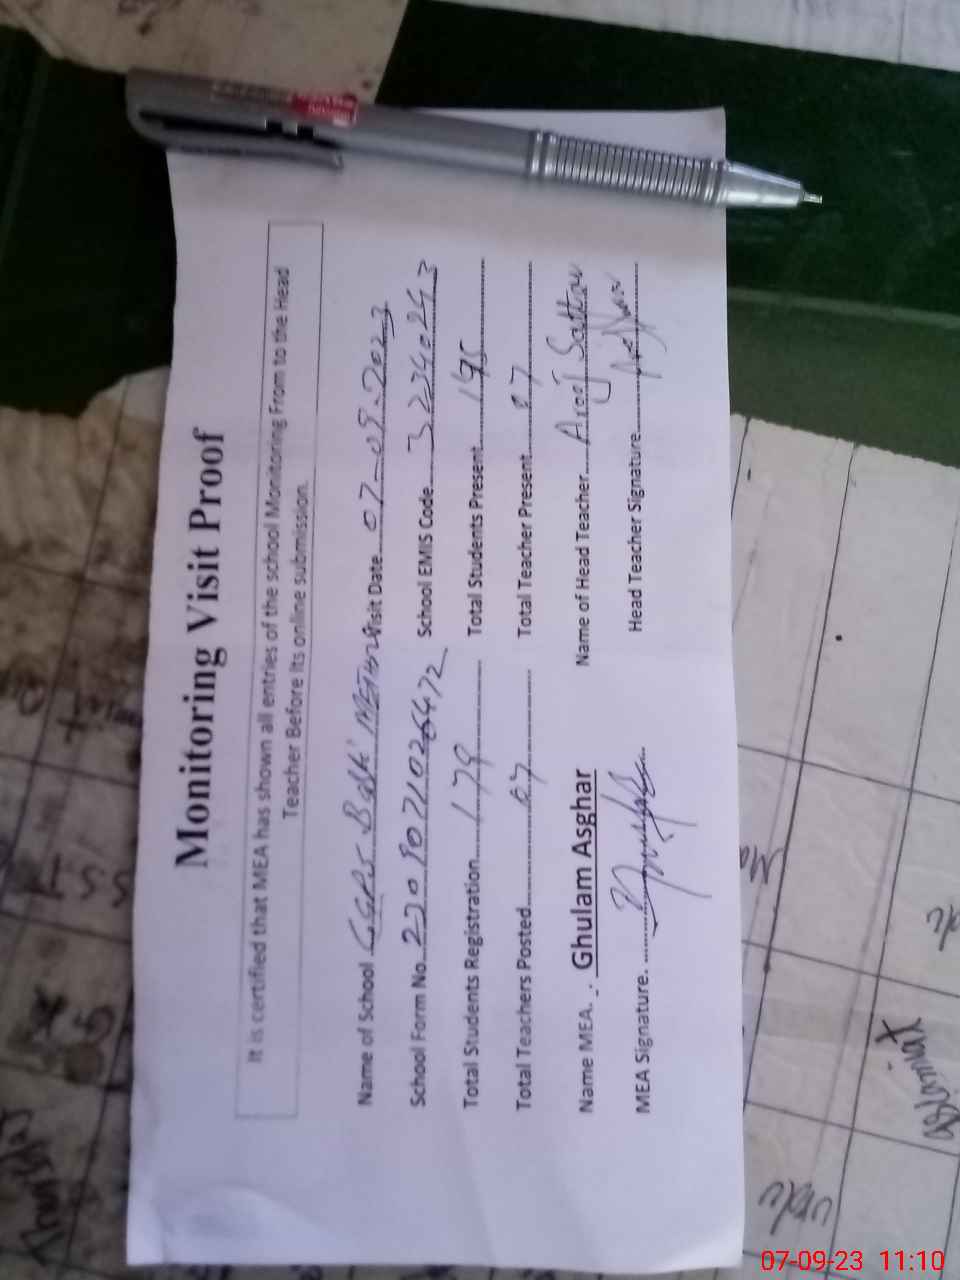 Monitoring Visit Proof
It is certified that MEA has shown all entries of the school Monitoring From to the Head
Teacher Before its online submission.
Name of School GGPS Basti Visit Date 07-09-2023
School Form No. 2309071026472 School EMIS Code 32340243
Total Students Registration 179 Total Students Present
Total Teachers Posted 07 Total Teacher Present 07
Name MEA. Ghulam Asghar Name of Head Teacher Arooj Sattar
MEA Signature. Head Teacher Signature
urdu
Islamiat
07-09-23 11:10